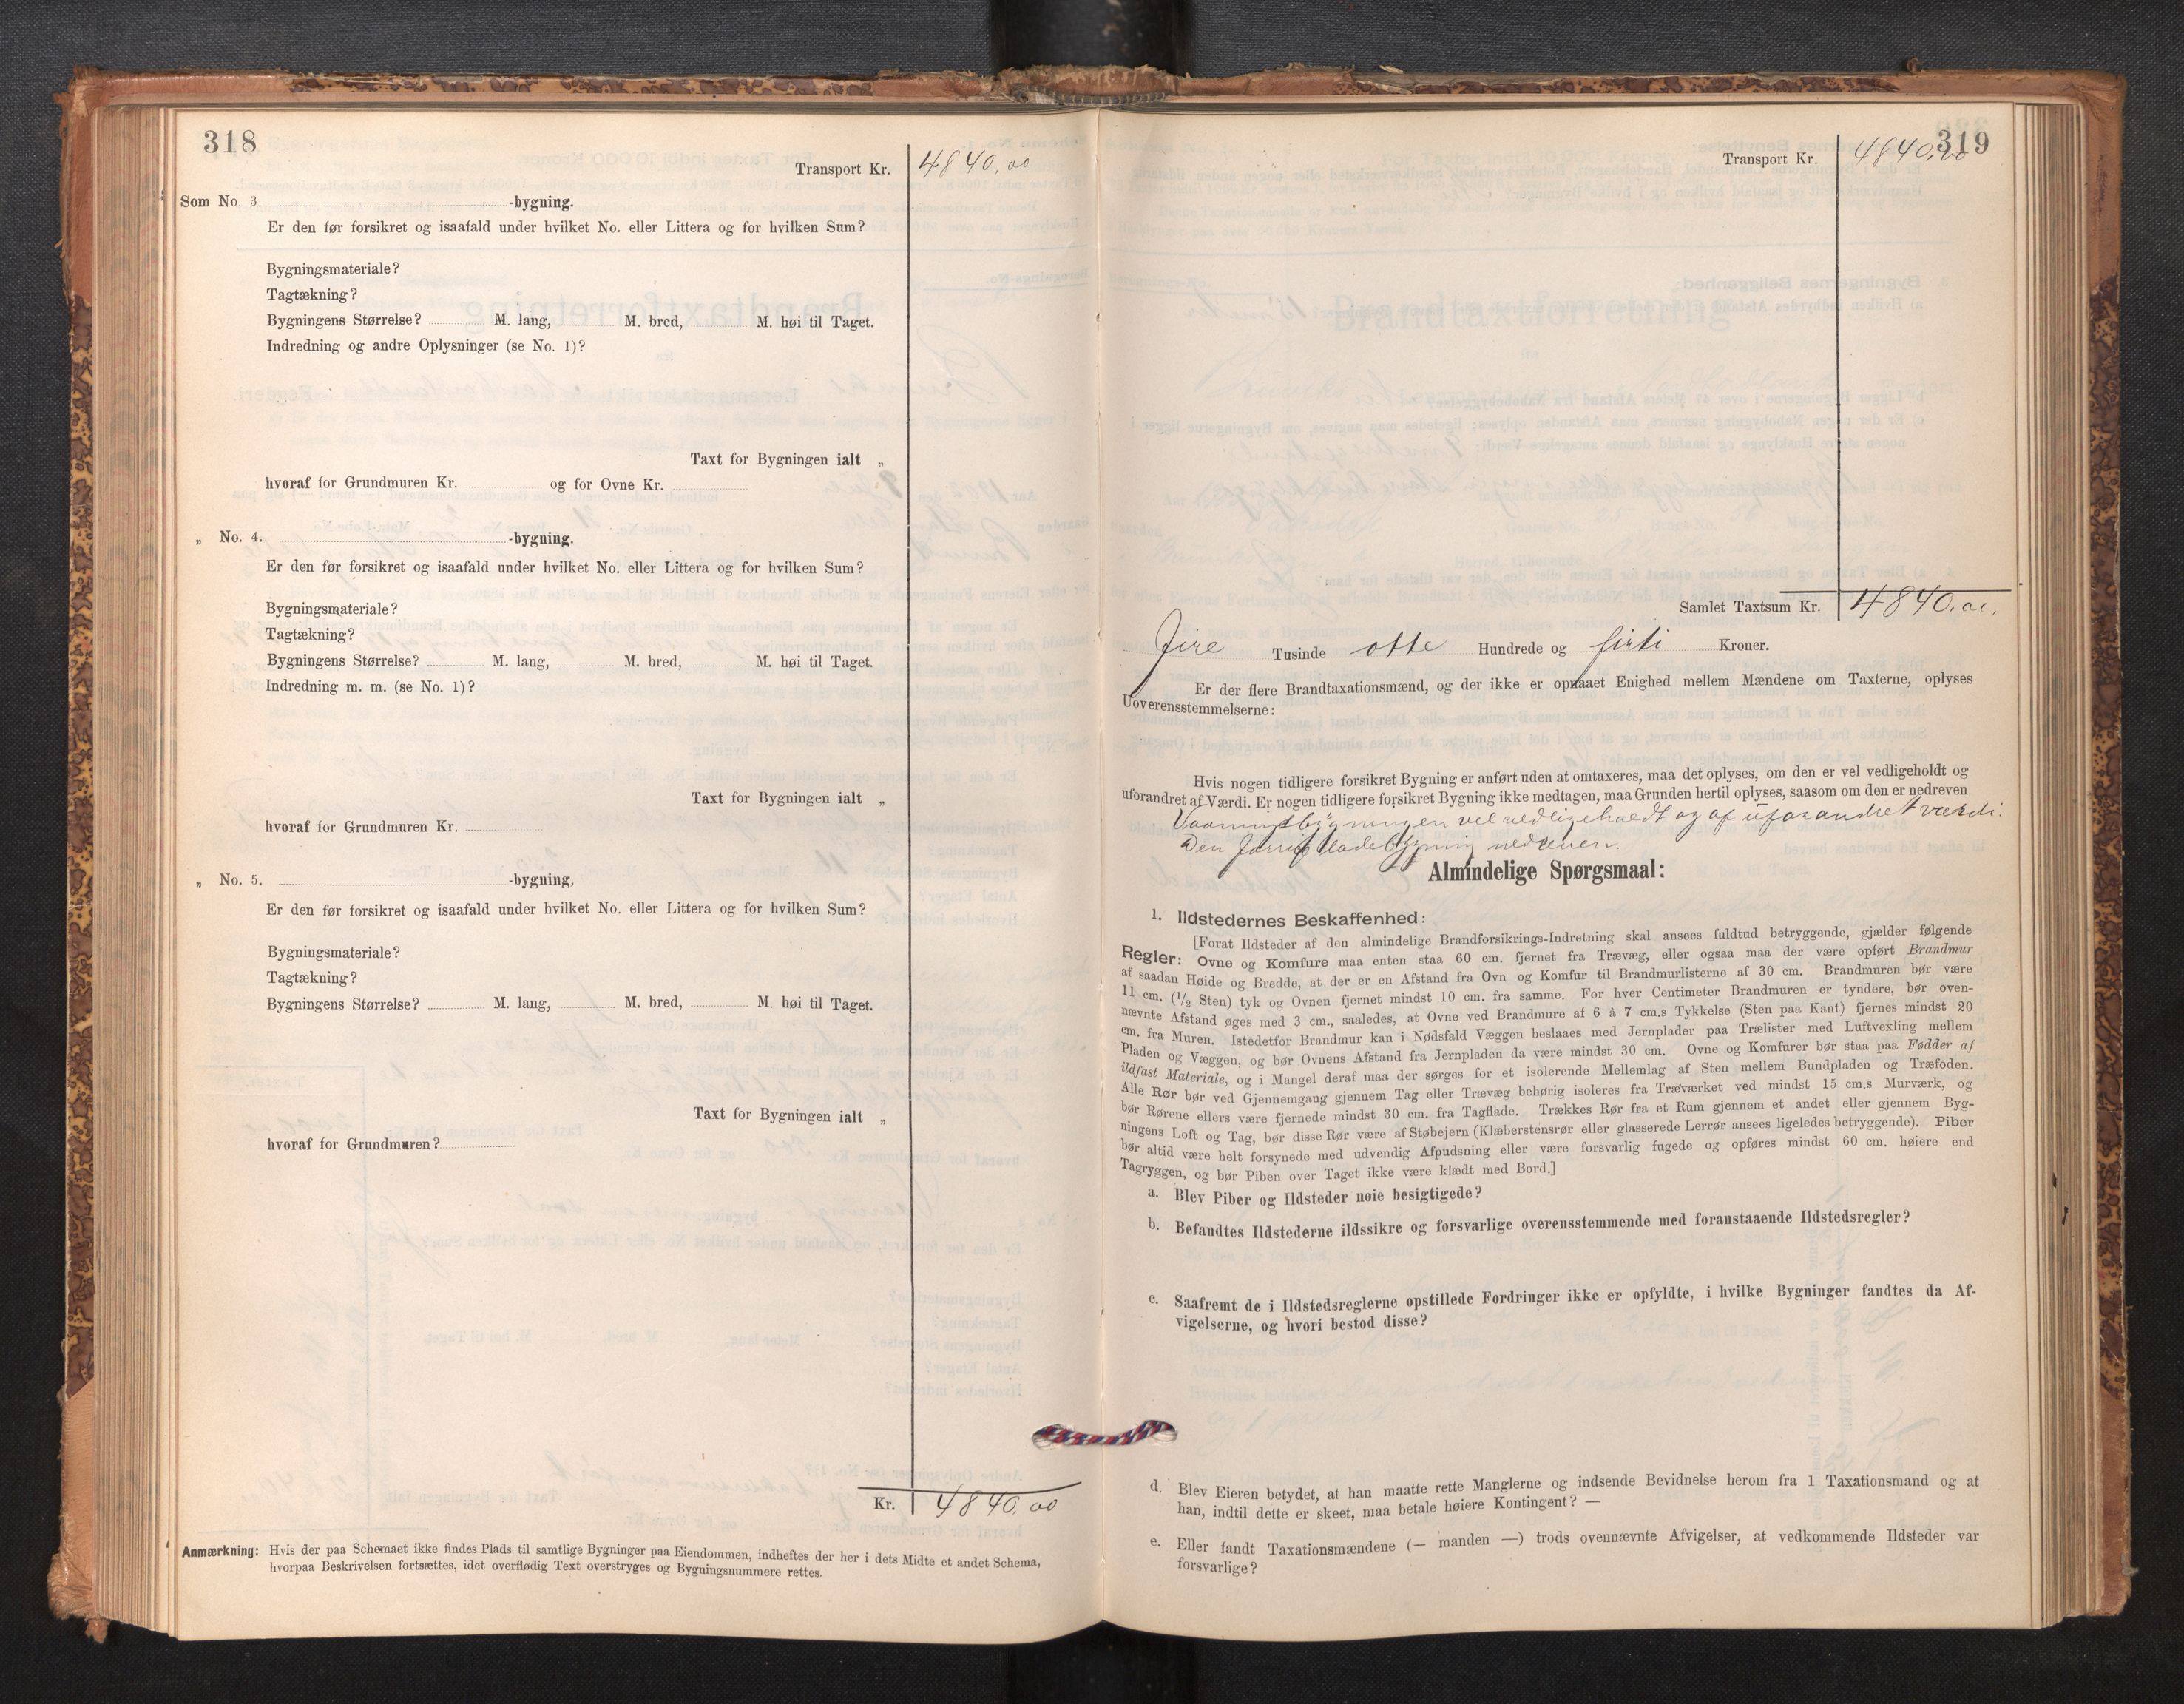 318
Transport Kr. 4840.00
Som No. 3. -bygning.
Er den før forsikret og isaafald under hvilket No. eller Littera og for hvilken Sum?
Bygningsmateriale?
Tagtækning?
Bygningens Størrelse? M. lang, M. bred, M. høi til Taget.
Indredning og andre Oplysninger (se No. 1)?
Taxt for Bygningen ialt „
hvoraf for Grundmuren Kr. og for Ovne Kr.
„ No. 4. -bygning.
Er den før forsikret og isaafald under hvilket No. eller Littera og for hvilken Sum?
Bygningsmateriale?
Tagtækning?
Bygningens Størrelse? M. lang, M. bred, M. høi til Taget.
Indredning m. m. (se No. 1)?
Taxt for Bygningen ialt „
hvoraf for Grundmuren Kr.
„ No. 5. -bygning,
Er den før forsikret og isaafald under hvilket No. eller Littera og for hvilken Sum?
Bygningsmateriale?
Tagtækning?
Bygningens Størrelse? M. lang, M. bred, M. høi til Taget.
Taxt for Bygningen ialt „
hvoraf for Grundmuren?
Kr. 4840.00
Anmærkning: Hvis der paa Schemaet ikke findes Plads til samtlige Bygninger paa Eiendommen, indheftes der her i dets Midte et andet Schema,
hvorpaa Beskrivelsen fortsættes, idet overflødig Text overstryges og Bygningsnummere rettes.
319
Transport Kr. 4840.00
Samlet Taxtsum Kr. 4840.00.
Fire Tusinde otte Hundrede og firti Kroner.
Er der flere Brandtaxationsmænd, og der ikke er opnaaet Enighed mellem Mændene om Taxterne, oplyses
Uoverensstemmelserne:
Hvis nogen tidligere forsikret Bygning er anført uden at omtaxeres, maa det oplyses, om den er vel vedligeholdt og
uforandret af Værdi. Er nogen tidligere forsikret Bygning ikke medtagen, maa Grunden hertil oplyses, saasom om den er nedreven
Vaaningsbygningen vel vedligeholdt og af uforandret værdi.
Den forrige ladebygning nedreven.
Almindelige Spørgsmaal:
1. Ildstedernes Beskaffenhed:
[Forat Ildsteder af den almindelige Brandforsikrings-Indretning skal ansees fuldtud betryggende, gjælder følgende
Regler: Ovne og Komfure maa enten staa 60 cm. fjernet fra Trævæg, eller ogsaa maa der være opført Brandmur
af saadan Høide og Bredde, at der er en Afstand fra Ovn og Komfur til Brandmurlisterne af 30 cm. Brandmuren bør være
11 cm. (1/2 Sten) tyk og Ovnen fjernet mindst 10 cm. fra samme. For hver Centimeter Brandmuren er tyndere, bør oven-
nævnte Afstand øges med 3 cm., saaledes, at Ovne ved Brandmure af 6 à 7 cm.s Tykkelse (Sten paa Kant) fjernes mindst 20
cm. fra Muren. Istedetfor Brandmur kan i Nødsfald Væggen beslaaes med Jernplader paa Trælister med Luftvexling mellem
Pladen og Væggen, og bør Ovnens Afstand fra Jernpladen da være mindst 30 cm. Ovne og Komfurer bør staa paa Fødder af
ildfast Materiale, og i Mangel deraf maa der sørges for et isolerende Mellemlag af Sten mellem Bundpladen og Træfoden.
Alle Rør bør ved Gjennemgang gjennem Tag eller Trævæg behørig isoleres fra Træværket ved mindst 15 cm.s Murværk, og
bør Rørene ellers være fjernede mindst 30 cm. fra Tagflade. Trækkes Rør fra et Rum gjennem et andet eller gjennem Byg-
ningens Loft og Tag, bør disse Rør være af Støbejern (Klæberstensrør eller glasserede Lerrør ansees ligeledes betryggende). Piber
bør altid være helt forsynede med udvendig Afpudsning eller være forsvarlig fugede og opføres mindst 60 cm. høiere end
Tagryggen, og bør Piben over Taget ikke være klædt med Bord.]
a. Blev Piber og Ildsteder nøie besigtigede?
b. Befandtes Ildstederne ildssikre og forsvarlige overensstemmende med foranstaaende Ildstedsregler?
c. Saafremt de i Ildstedsreglerne opstillede Fordringer ikke er opfyldte, i hvilke Bygninger fandtes da Af-
vigelserne, og hvori bestod disse?
d. Blev Eieren betydet, at han maatte rette Manglerne og indsende Bevidnelse herom fra 1 Taxationsmand og at
han, indtil dette er skeet, maa betale høiere Kontingent? —
e. Eller fandt Taxationsmændene (— manden —) trods ovennævnte Afvigelser, at vedkommende Ildsteder var
forsvarlige?